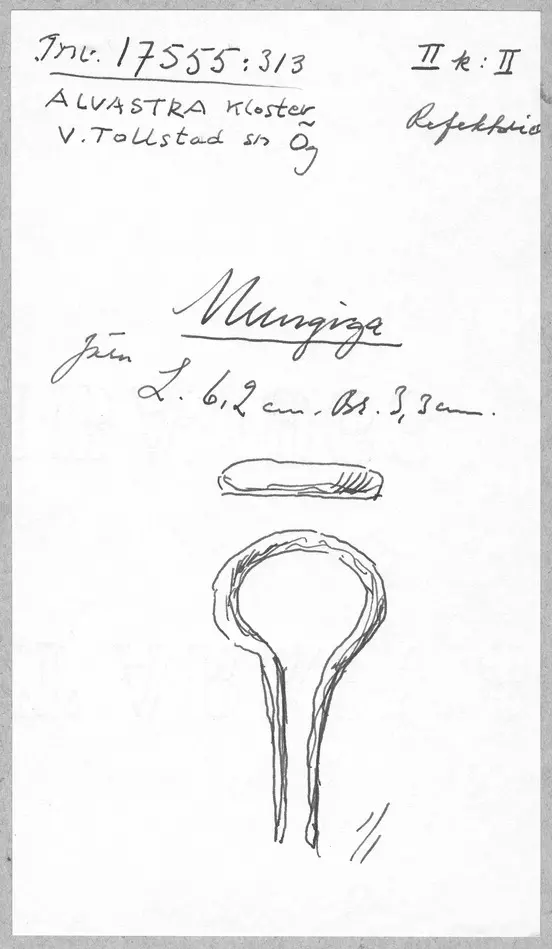 Inv. 17555:313
II k: II
ALVASTRA Kloster
V. Tollstad sn Ög
Mungiga
Järn
L. 6,2 cm. Br. 3,3 cm.
1/1